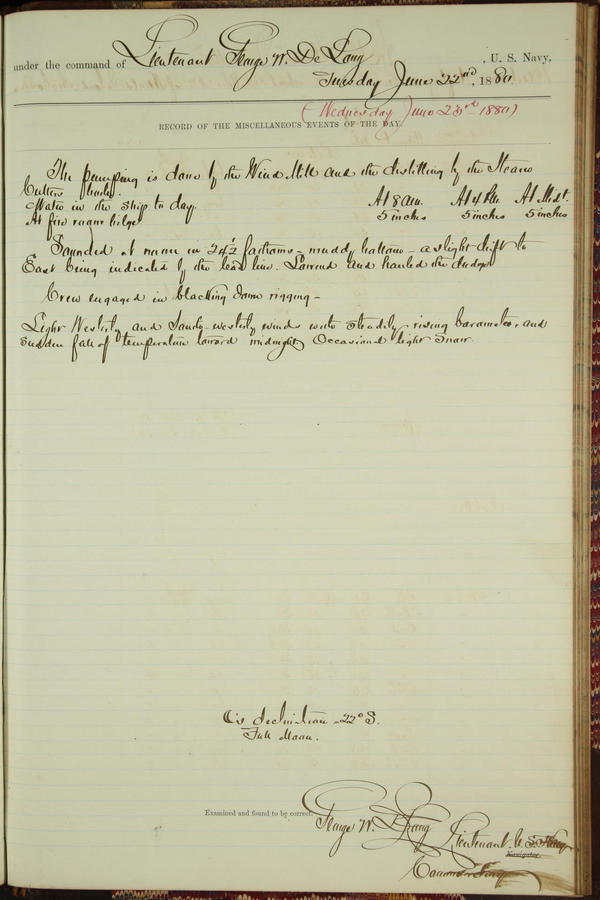 under the command of Lieutenant George W. De Long, U. S. Navy,
Tuesday June 22nd, 1880
(Wednesday June 23rd 1880)
RECORD OF THE MISCELLANEOUS EVENTS OF THE DAY.
The pumping is done by the Wind Mill and the distilling by the Steam
Cutters boiler.
Water in the ship to day. At 8 am. At 4 PM. At Midt.
At fire room bilge 5 inches 5 inches 5 inches
Sounded at noon in 24½ fathoms - muddy bottom - a slight drift to
East being indicated by the lead line. Lowered and hauled the dredge
Crew engaged in blacking down rigging -
Light Westerly and South-westerly winds with steadily rising barometer, and
sudden fall of temperature toward midnight. Occasional light snow.
C's declination - 22° S.
Full Moon.
Examined and found to be correct.
George W. De Long Lieutenant U. S. Navy
Navigator.
Commanding